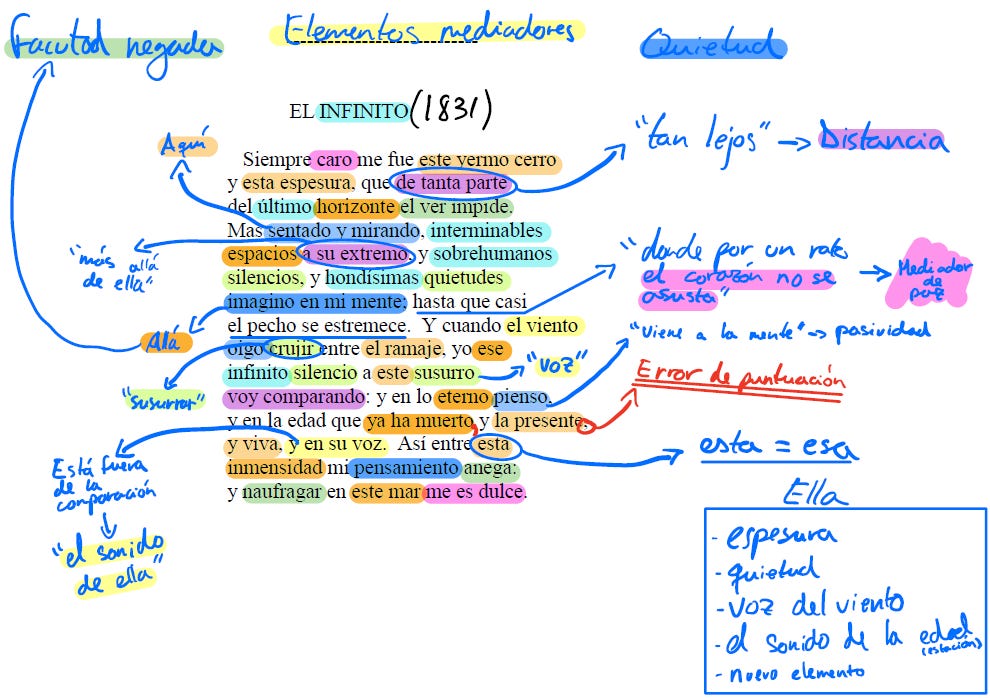 Facultad negadora
Elementos mediadores
Quietud
EL INFINITO (1831)
Aquí
"tan lejos" → Distancia
Siempre caro me fue este yermo cerro
y esta espesura, que de tanta parte
del último horizonte el ver impide.
Mas sentado y mirando, interminables
espacios a su extremo, y sobrehumanos
silencios, y hondísimas quietudes
imagino en mi mente; hasta que casi
el pecho se estremece. Y cuando el viento
oigo crujir entre el ramaje, yo ese
infinito silencio a este susurro
voy comparando: y en lo eterno pienso,
y en la edad que ya ha muerto y la presente,
y viva, y en su voz. Así entre esta
inmensidad mi pensamiento anega:
y naufragar en este mar me es dulce.
"más allá
de ella"
Allá
"susurrar"
Está fuera
de la
comparación
"el sonido
de ella"
"donde por un rato
el corazón no se
asusta"
→ Mediador
de
paz
"viene a la mente" → pasividad
"voz"
Error de puntuación
esta = esa
Ella
- espesura
- quietud
- voz del viento
- el sonido de la edad
(estación)
- nuevo elemento